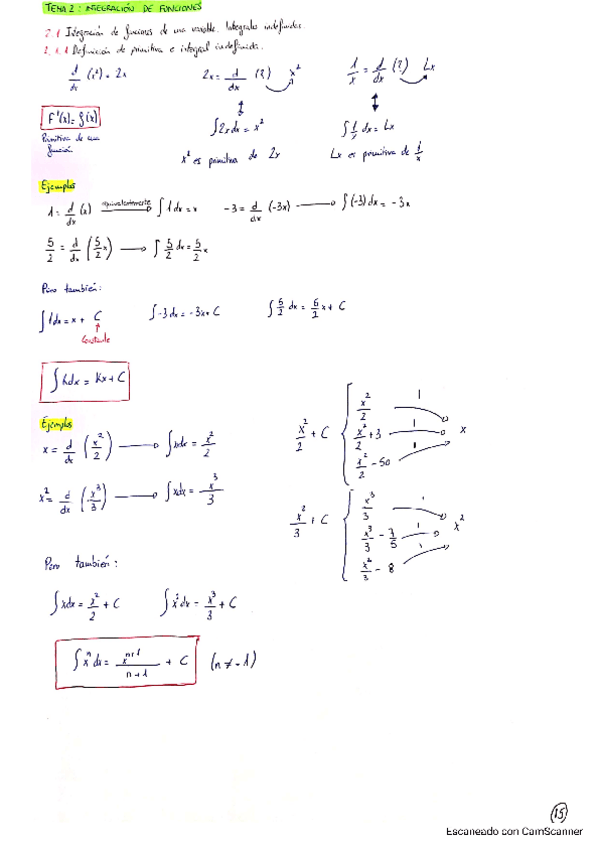 TEMA 2: INTEGRACIÓN DE FUNCIONES
2.1 Integración de funciones de una variable. Integrales indefinidas.
2.1.1 Definición de primitiva e integral indefinida.
d/dx (x²) = 2x    2x = d/dx (?) x²    1/x = d/dx (?) Lx
F'(x) = f(x)    ∫2x dx = x²    ∫1/x dx = Lx
Primitiva de una función
x² es primitiva de 2x    Lx es primitiva de 1/x
Ejemplos
1 = d/dx (x) equivalentemente ∫1 dx = x    -3 = d/dx (-3x) → ∫(-3) dx = -3x
5/2 = d/dx (5/2 x) → ∫5/2 dx = 5/2 x
Pero también:
∫1dx = x + C    ∫-3 dx = -3x + C    ∫5/2 dx = 5/2 x + C
Constante
∫k dx = kx + C
Ejemplos
x = d/dx (x²/2) → ∫x dx = x²/2
x² = d/dx (x³/3) → ∫x dx = x³/3
x²/2 + C { x²/2    x²/2 + 3    x²/2 - 50 → x
x²/3 + C { x³/3    x³/3 - 7/5    x²/3 - 8 → x²
Pero también:
∫x dx = x²/2 + C    ∫x² dx = x³/3 + C
∫xⁿ dx = xⁿ⁺¹/n+1 + C    (n ≠ -1)
15
Escaneado con CamScanner